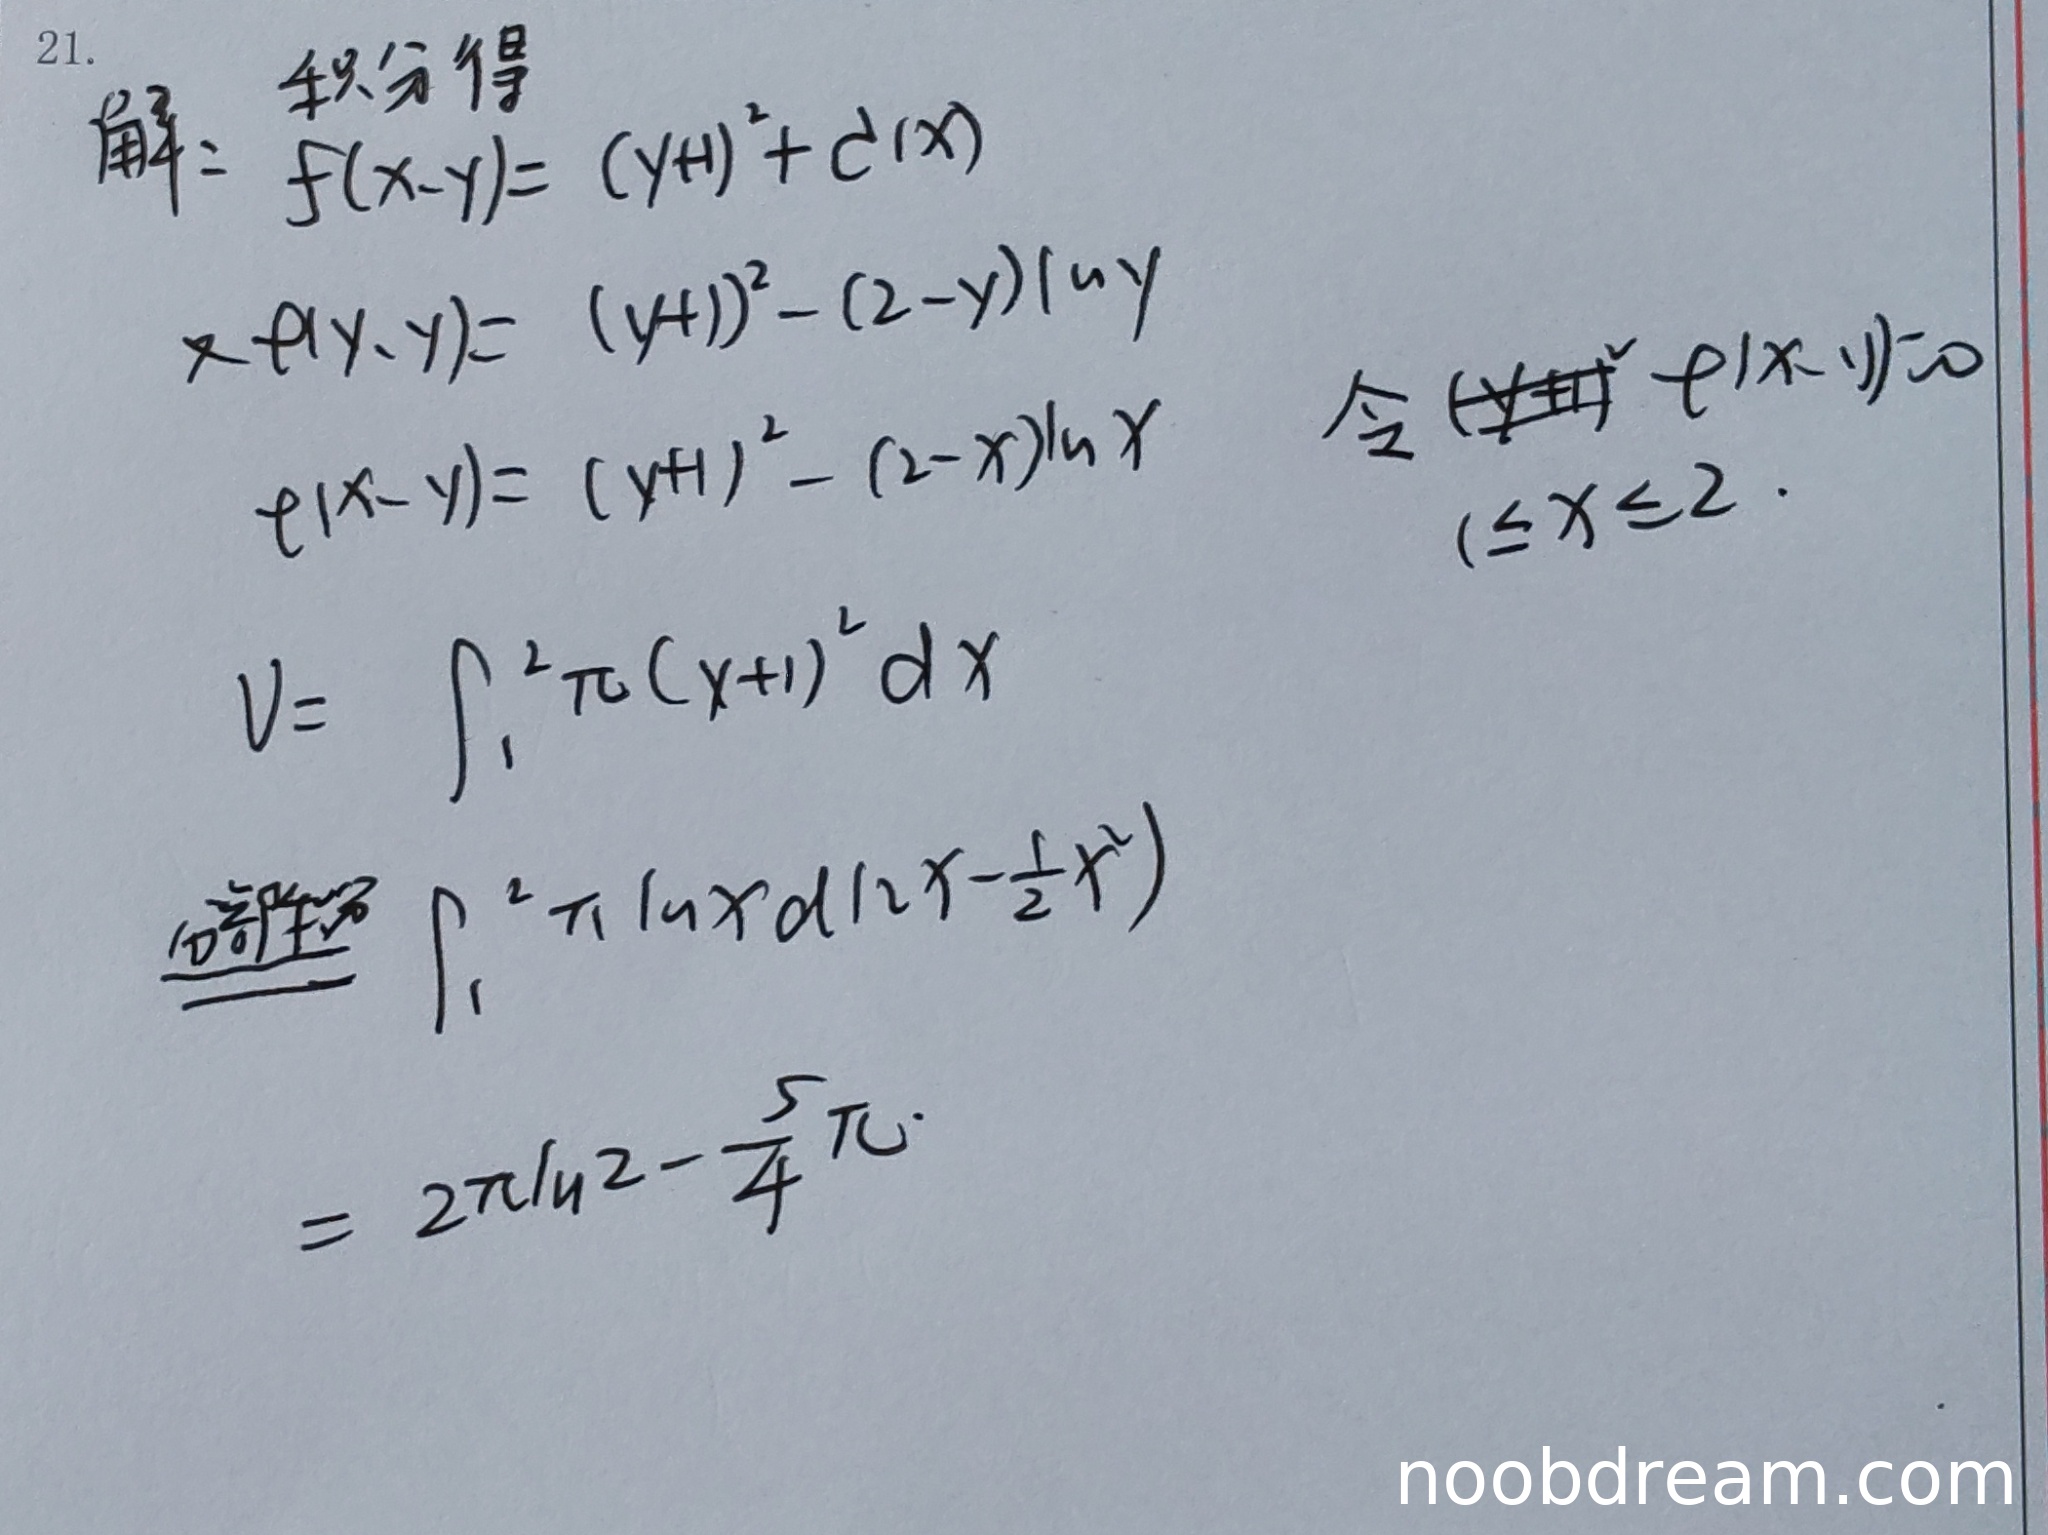 21.
解: 积分得
f(x,y)= (y+1)²+C(x)
又f(y,y)= (y+1)²-(2-y)lny
f(x,y)= (y+1)²-(2-x)lnx
令 f(x,y)=0
1≤x≤2.
V= ∫₁² π(y+1)²dx
分部积分 ∫₁² πlnxd(2x-½x²)
= 2πln2-5/4π.
noobdream.com